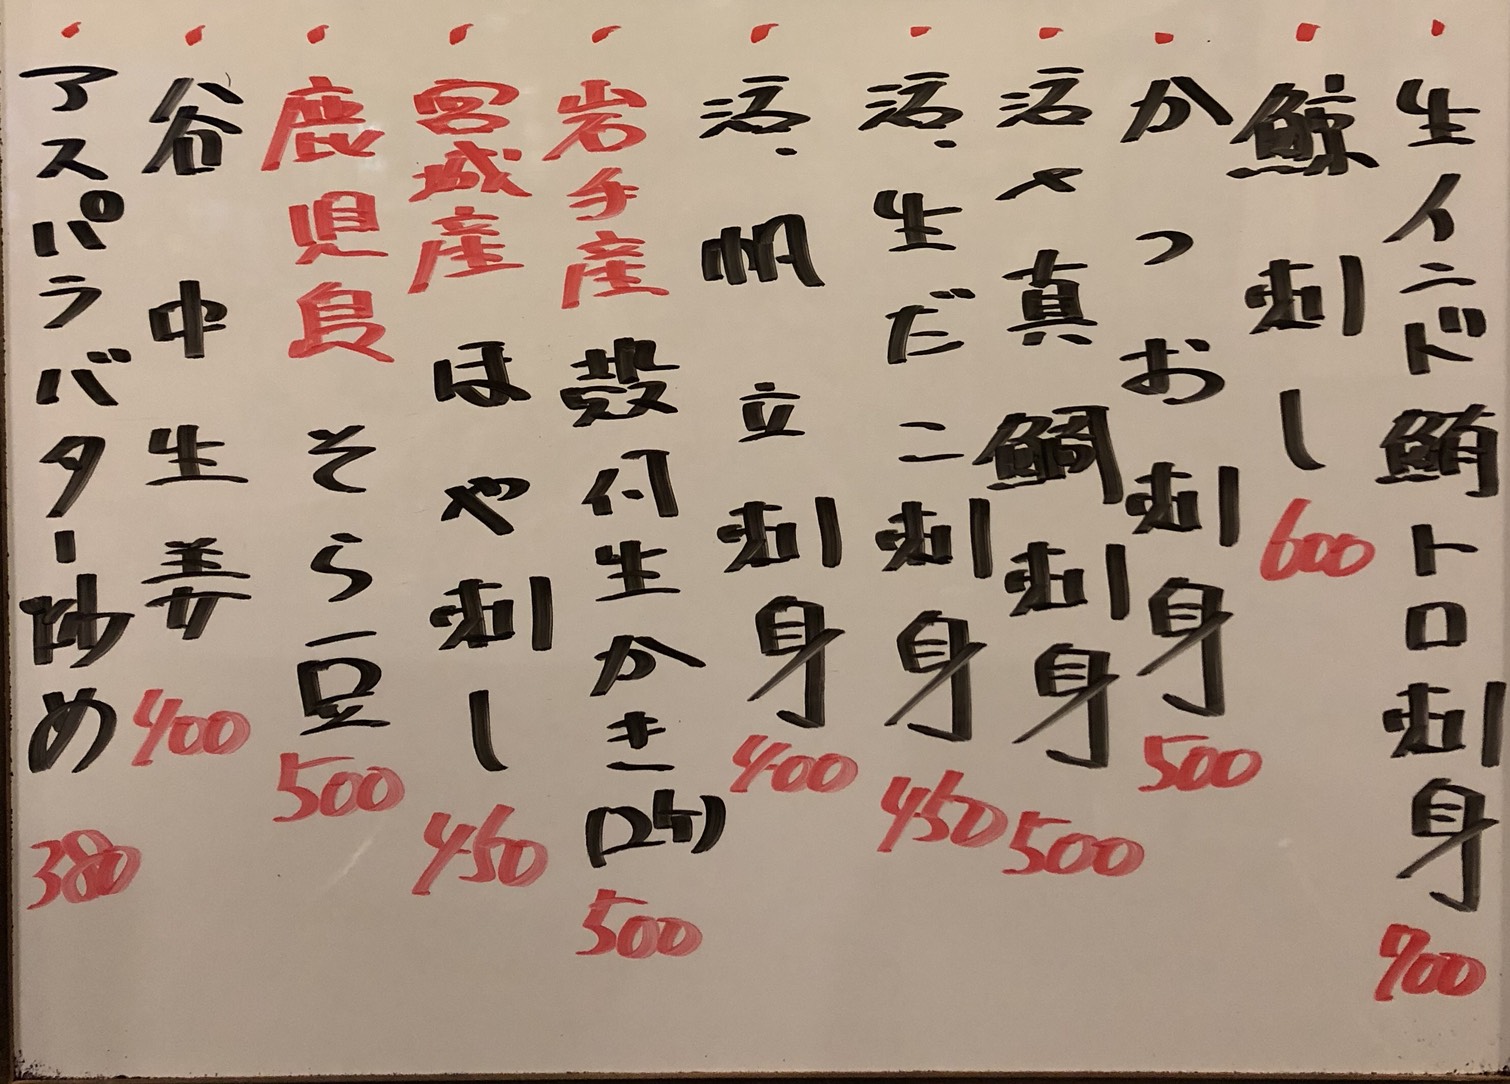 ・生インド鮪トロ刺身 700
・鯨刺し 600
・かつお刺身 500
・活〆真鯛刺身 500
・活・生だこ刺身 450
・活・帆立刺身 400
・岩手産殻付生かき(2ケ) 500
・宮城産ほや刺し 450
・鹿児島そら豆 500
・谷中生姜 400
・アスパラバター炒め 380